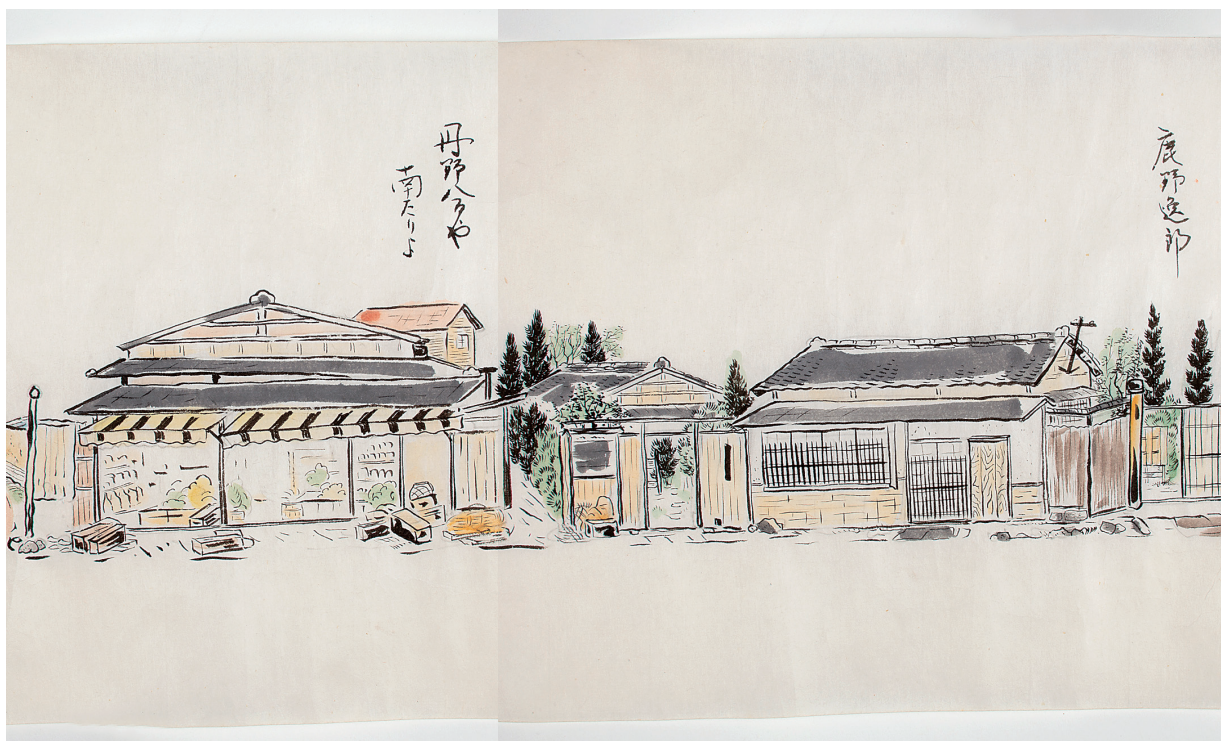 鹿野逸郎
丹野八百や
南たりよ